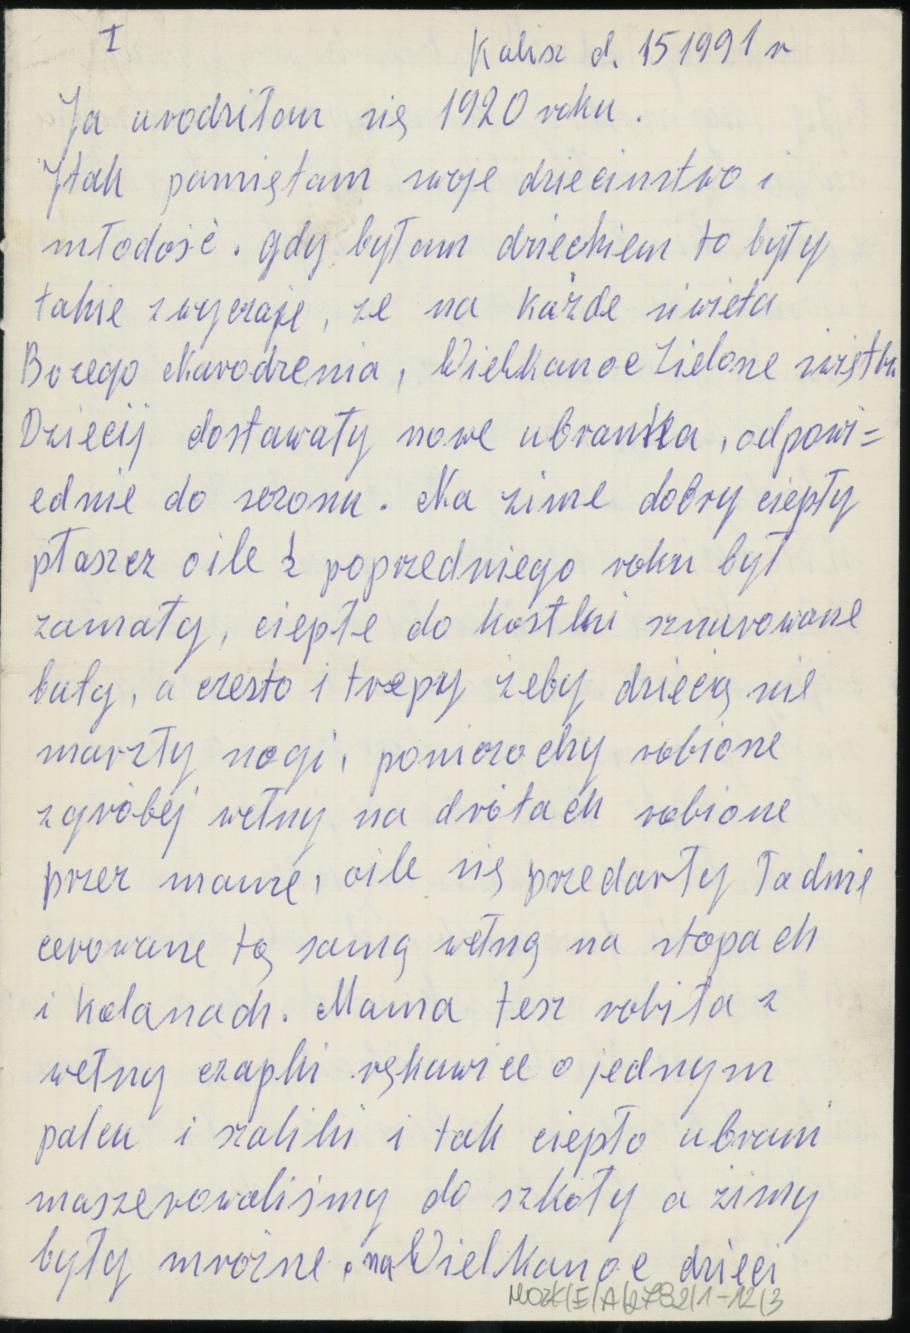 I
Kalisz d. 15 1991 r
Ja urodziłam się 1920 roku.
Itak pamiętam swoje dziecinstwo i
młodość. gdy byłam dzieckiem to były
takie zwyczaje, ze na każde swieta
Bozego Narodzenia, Wielkanoc Zielone swiętka
Dziecij dostawały nowe ubranka, odpowi=
ednie do sezonu. Na zime dobry ciepły
płaszcz oile z poprzedniego roku był
zamały, ciepłe do kostki sznurowane
buty, a czesto i trepy żeby dziecią nie
marzły nogi, ponczochy robione
zgróbej wełny na drótach robione
przez mame, oile się przedarły ładnie
cerowane tą samą wełną na stopach
i kolanach. Mama tesz robiła z
wełny czapki rękawice o jednym
palcu i szaliki i tak ciepło ubrani
maszerowaliśmy do szkoły a zimy
były mroźne. na Wielkanoc dzieci
MOZK/E/A/2782/1-12/3